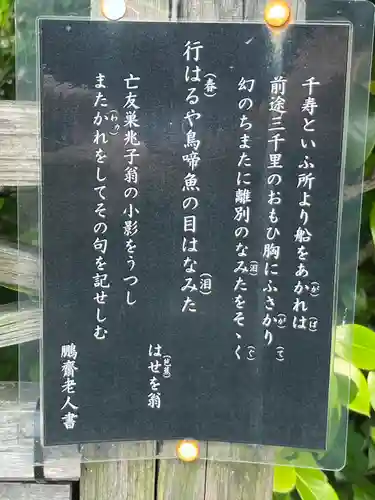 千寿といふ所より船をあかれは
(が)(ば)
前途三千里のおもひ胸にふさかり
(が)(て)
幻のちまたに離別のなみたをそゝく
(泪)(ぐ)
行はるや鳥啼魚の目はなみた
(春)(泪)
はせを翁
(芭蕉)
亡友巣兆子翁の小影をうつし
またかれをしてその句を記せしむ
(わ)
鵬齋老人書